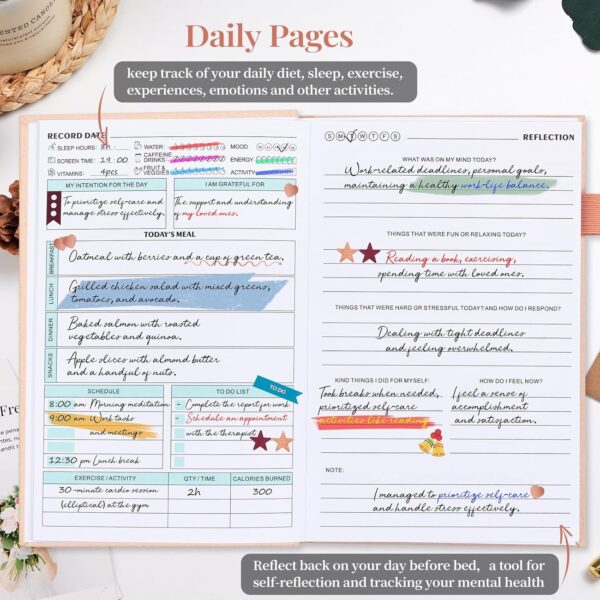 Daily Pages
keep track of your daily diet, sleep, exercise,
experiences, emotions and other activities.
RECORD DATE
SLEEP HOURS: 8h
SCREEN TIME: 19:00
VITAMINS: 4pcs
WATER:
CAFFEINE
DRINKS:
FRUIT &
VEGGIES
MOOD
ENERGY
ACTIVITY
MY INTENTION FOR THE DAY
To prioritize self-care and
manage stress effectively.
I AM GRATEFUL FOR
The support and understanding
of my loved ones.
TODAY'S MEAL
BREAKFAST
Oatmeal with berries and a cup of green tea.
LUNCH
Grilled chicken salad with mixed greens,
tomatoes, and avocado.
DINNER
Baked salmon with roasted
vegetables and quinoa.
SNACKS
Apple slices with almond butter
and a handful of nuts.
SCHEDULE
8:00 am Morning meditation
9:00 am Work tasks
and meetings
12:30 pm Lunch break
TO DO LIST
TO DO
- Complete the report for work
- Schedule an appointment
with the therapist
EXERCISE / ACTIVITY
QTY / TIME
CALORIES BURNED
30-minute cardio session
2h
300
(elliptical) at the gym
S M T W T F S
REFLECTION
WHAT WAS ON MY MIND TODAY?
Work-related deadlines, personal goals,
maintaining a healthy work-life balance.
THINGS THAT WERE FUN OR RELAXING TODAY?
Reading a book, exercising,
spending time with loved ones.
THINGS THAT WERE HARD OR STRESSFUL TODAY? AND HOW DO I RESPOND?
Dealing with tight deadlines
and feeling overwhelmed.
KIND THINGS I DID FOR MYSELF:
Took breaks when needed,
prioritized self-care
activities like reading.
HOW DO I FEEL NOW?
I feel a sense of
accomplishment
and satisfaction.
NOTE:
I managed to prioritize self-care
and handle stress effectively.
Reflect back on your day before bed, a tool for
self-reflection and tracking your mental health